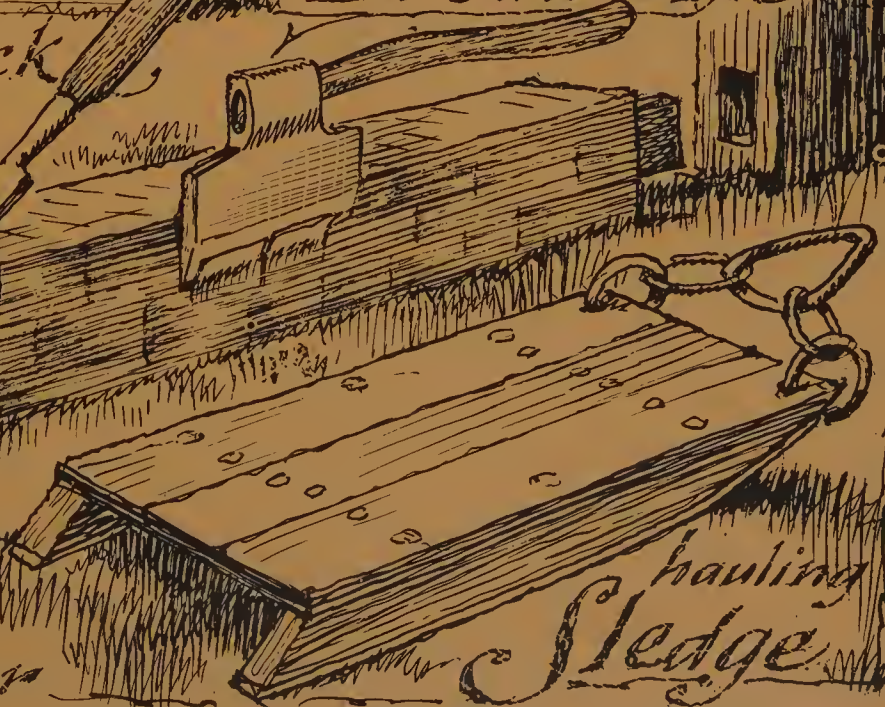 hauling
Sledge